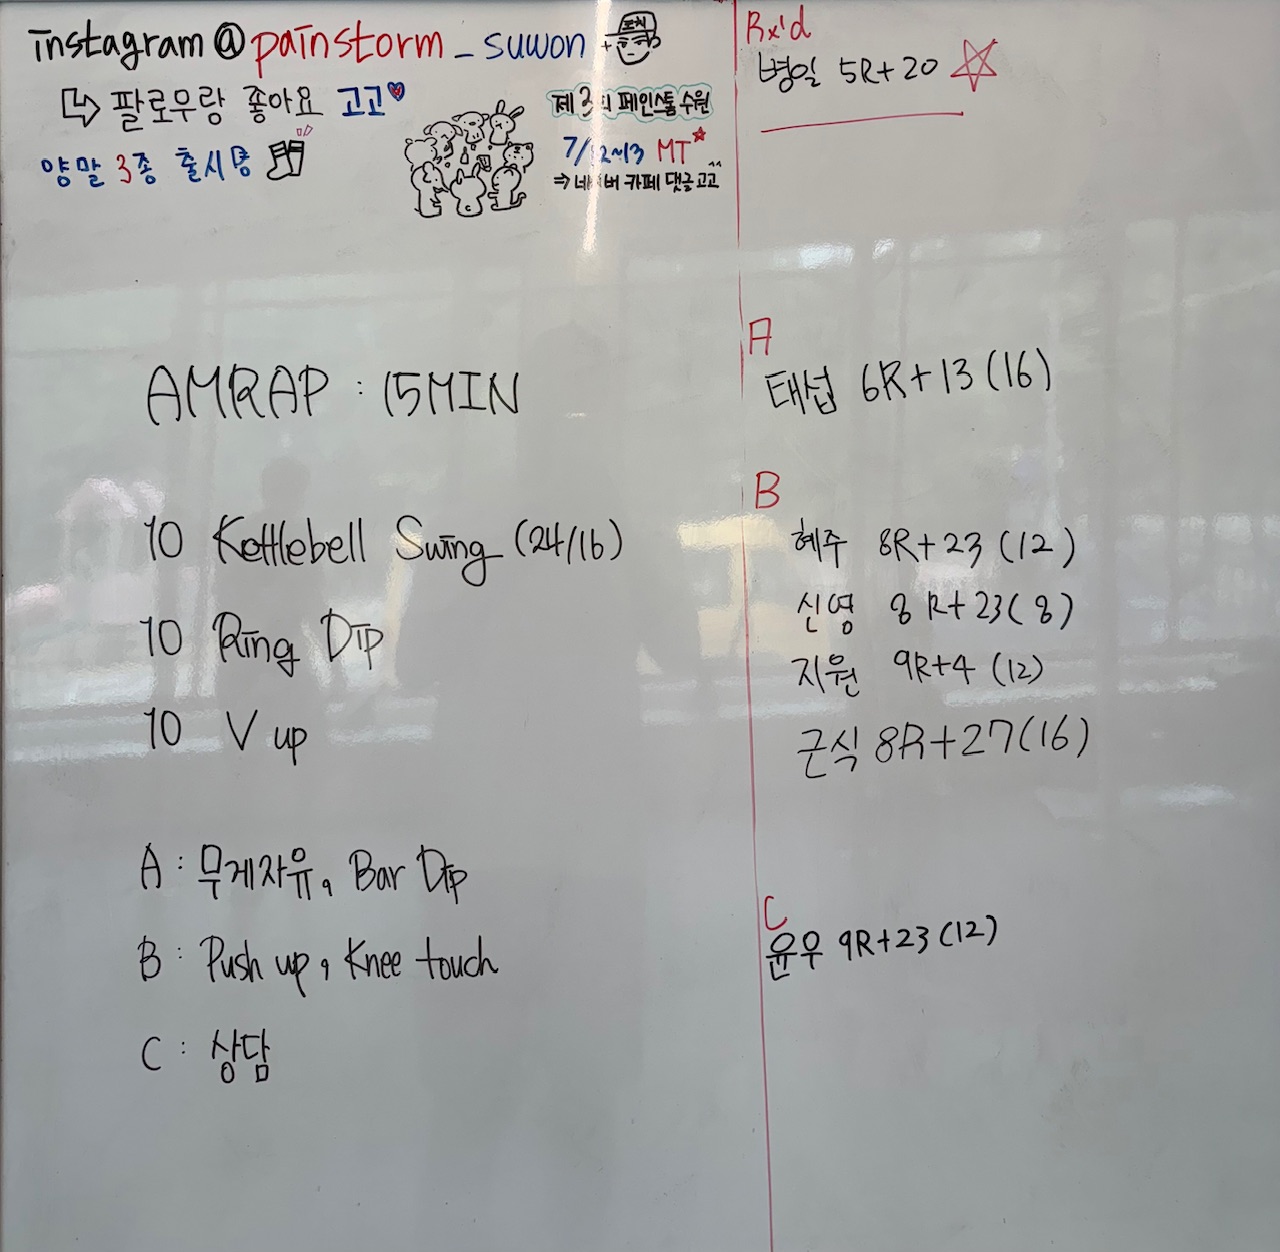 instagram @painstorm_suwon
팔로우랑 좋아요 고고
양말 3종 출시 명
코치
제 3회 페인스톰 수원
7/12~13 MT
⇒ 네이버 카페 댓글 고고
AMRAP : 15MIN
10 Kettlebell Swing (24/16)
10 Ring Dip
10 V up
A : 무게자유, Bar Dip
B : Push up, Knee touch
C : 상담
Rx'd
병일 5R+20
A
태섭 6R+13 (16)
B
혜주 8R+23 (12)
신영 8R+23 (8)
지원 9R+4 (12)
근식 8R+27 (16)
C
윤우 9R+23 (12)